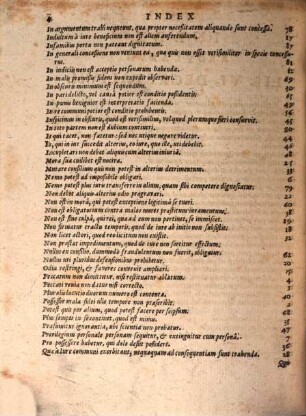 INDEX
In argumentum trahi nequeunt, quæ propter necessitatem aliquando sunt concessa. 78
Indultum à iure beneficium non est alicui auferendum. 17
Infamibus portæ non pateant dignitatum.
In generali concessione non veniunt ea, quæ quis non esset verisimiliter in specie concessurus.
In iudicijs non est acceptio personarum habenda.
In malis promissis fidem non expedit observari.
In obscuris minimum est sequendum.
In pari delicto, vel causa potior est conditio possidentis.
In pœnis benignior est interpretatio facienda.
In re communi potior est conditio prohibentis.
Inspicimus in obscuris, quod est verisimilius, vel quod plerumque fieri consuevit.
In toto partem non est dubium contineri.
Is qui tacet, non fatetur: sed nec utique negare videtur.
Is, qui in ius succedit alterius, eo iure, quo ille, uti debebit.
Locupletari non debet aliquis cum alterius iniuria
Mora sua cuilibet est nociva.
Mutare consilium quis non potest in alterius detrimentum.
Nemo potest ad impossibile obligari.
Nemo potest plus iuris transferre in alium, quam sibi competere dignoscatur.
Non debet aliquis alterius odio prægravari.
Non est in mora, qui potest exceptione legitima se tueri.
Non est obligatorium contra bonos mores præstitum iuramentum.
Non est sine culpa, qui rei, quæ ad eum non pertinet, se immiscet.
Non firmatur tractu temporis, quod de iure ab initio non subsistit.
Non licet actori, quod reo licitum non existit.
Non præstat impedimentum, quod de iure non sortitur effectum.
Nullus ex consilio, dummodo fraudulentum non fuerit, obligatur.
Nullus uti pluribus defensionibus prohibetur.
Odia restringi, & favores convenit ampliari.
Peccatum non dimittitur, nisi restituatur ablatum.
Peccati venia non datur nisi correcto.
Pluralis locutio duorum numero est contenta.
Possessor malæ fidei ullo tempore non præscribit.
Potest quis per alium, quod potest facere per seipsum.
Plus semper in se continet, quod est minus.
Præsumitur ignorantia, ubi scientia non probatur.
Privilegium personale personam sequitur, & extinguitur cum persona.
Pro possessore habetur, qui dolo desijt possidere.
Quæ à iure communi exorbitant, nequaquam ad consequentiam sunt trahenda. 28